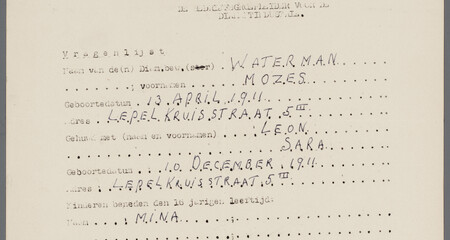 DE BEDRIJFSGELEIDER VOOR DE
DISTRIBUTIE.
Vragenlijst
Naam van de(n) Dien.bew.(ster) . WATERMAN
" ; voornamen . MOZES
Geboortedatum . 13 APRIL 1911
Adres . LEPELKRUISSTRAAT 5 III
Gehuwd met (naam en voornamen) . LEON
SARA
Geboortedatum . 10 DECEMBER 1911
Adres . LEPELKRUISSTRAAT 5 III
Kinderen beneden den 16 jarigen leeftijd:
Naam . MINA